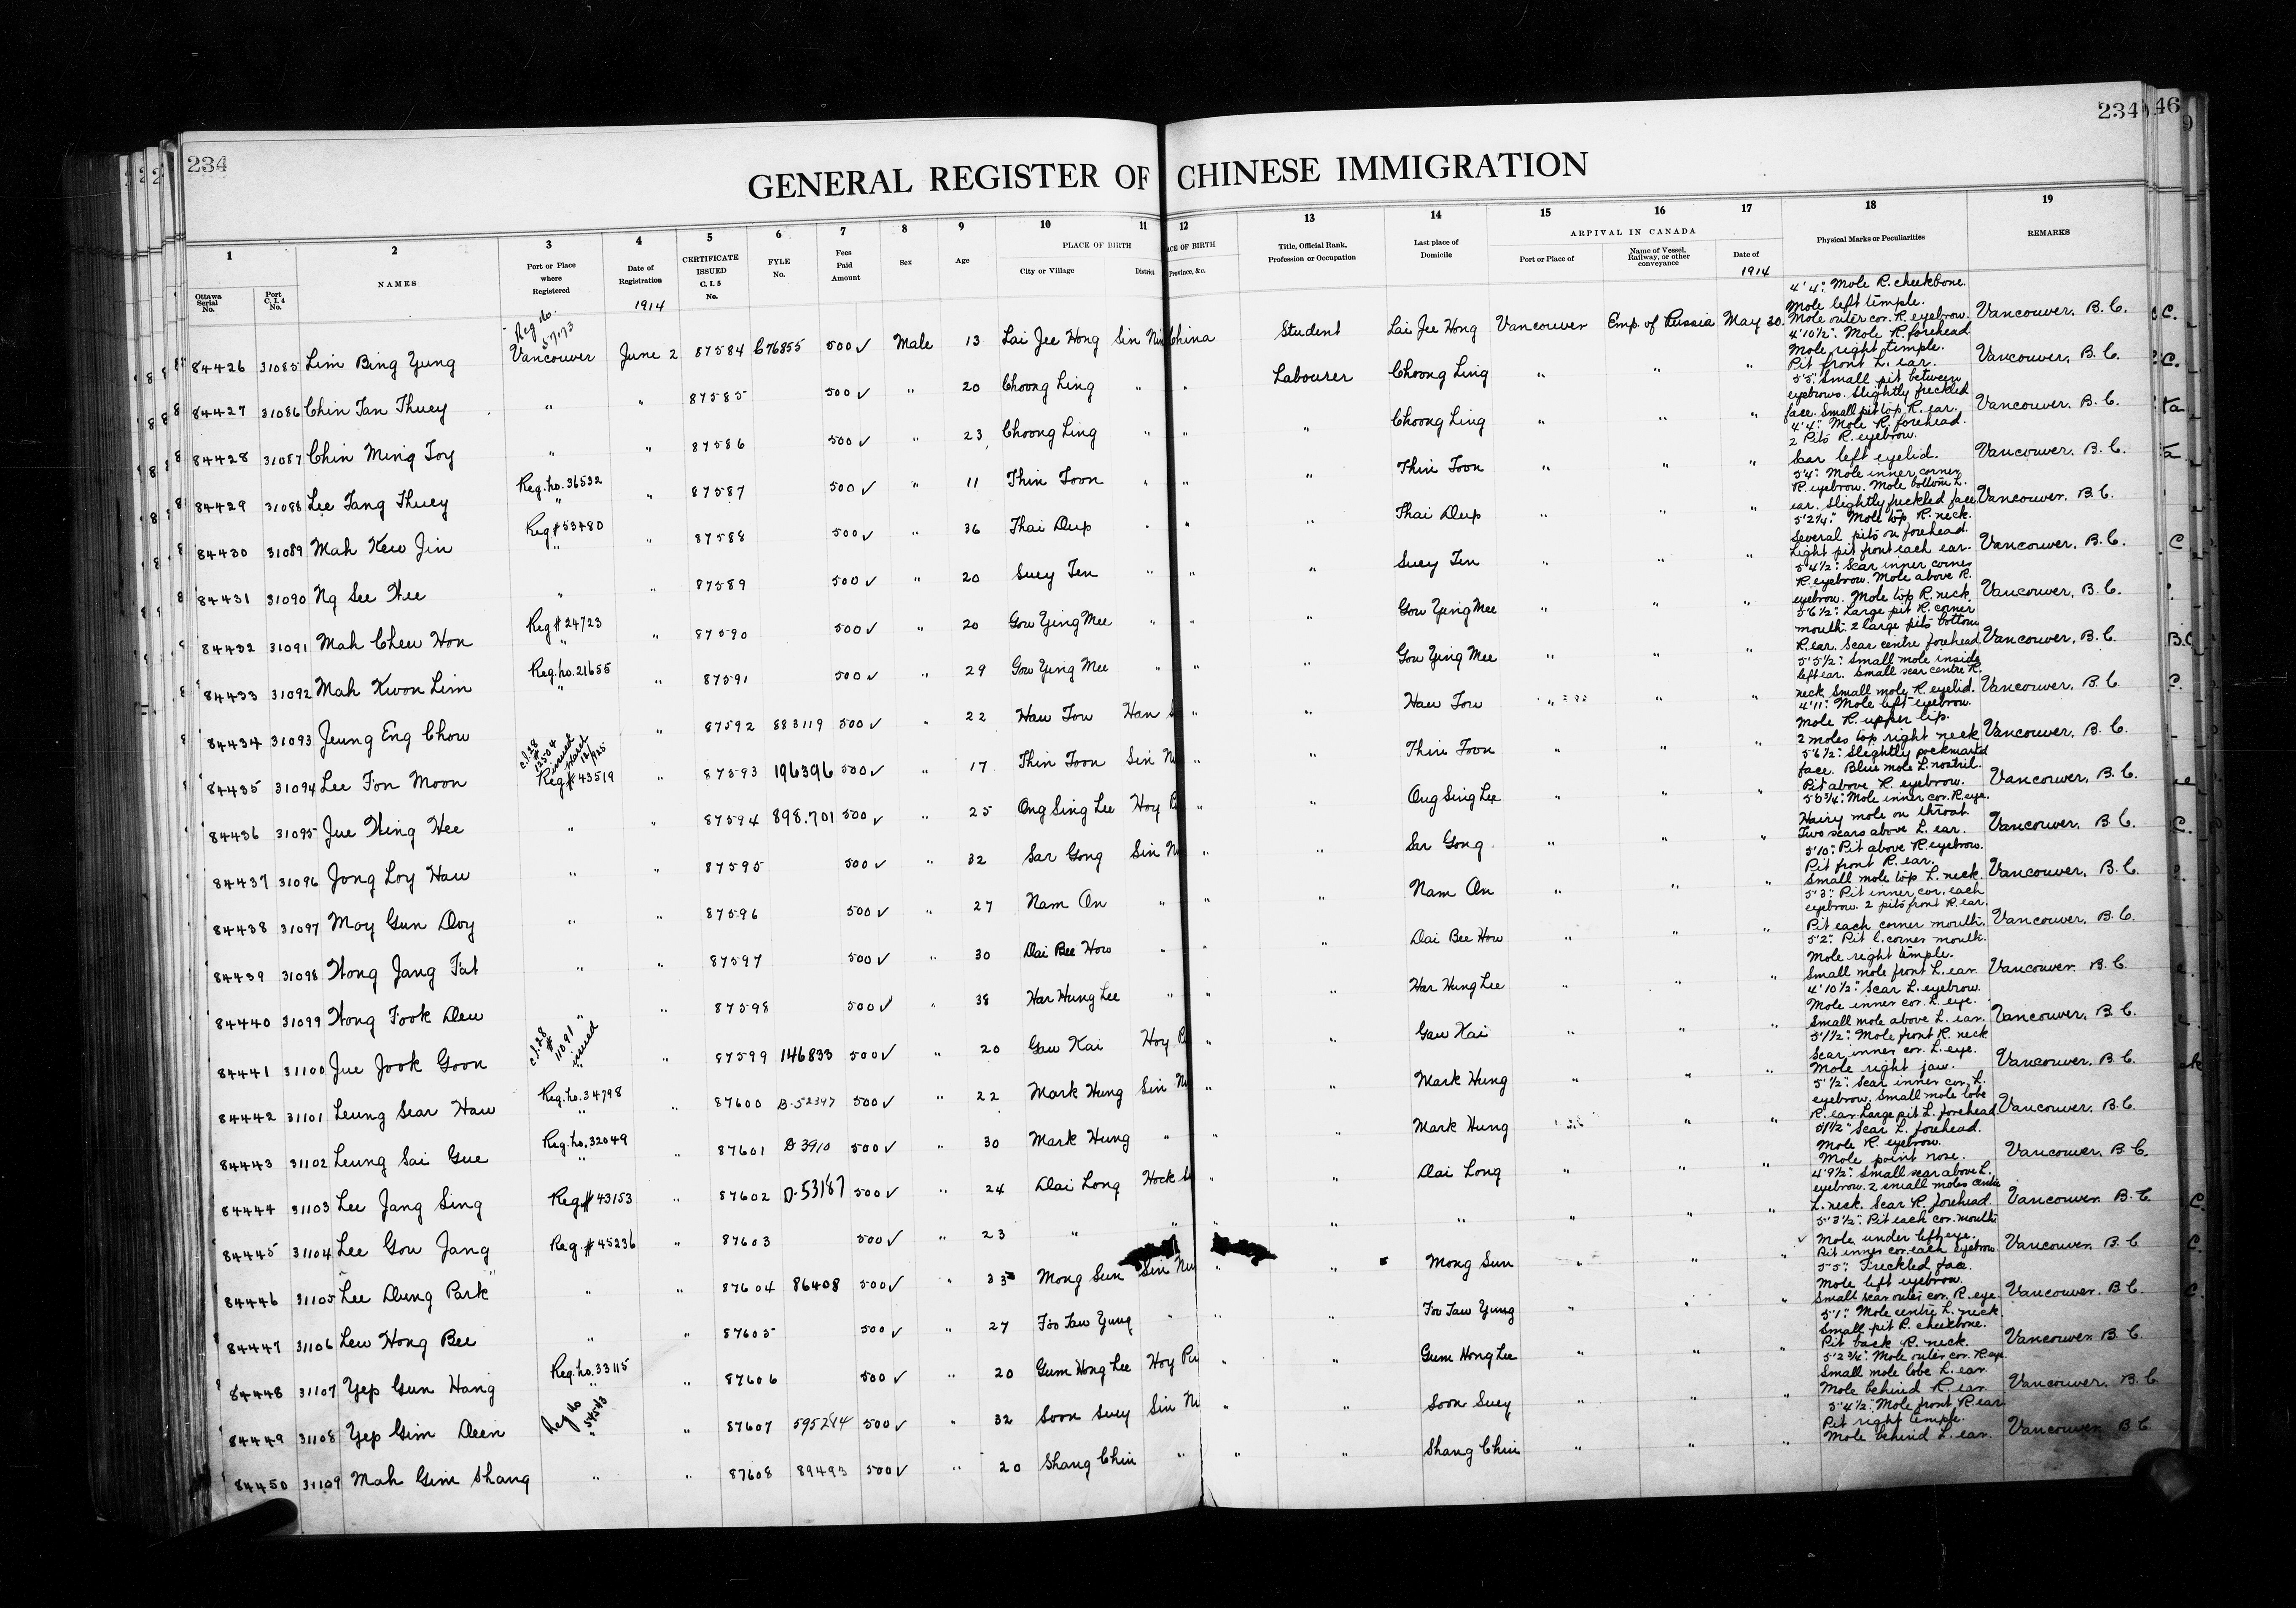 234
234
46
9
GENERAL REGISTER OF CHINESE IMMIGRATION
1 2 3 4 5 6 7 8 9 10 11 12 13 14 15 16 17 18 19
Ottawa Serial No.
Port C. I. 4 No.
NAMES
Port or Place where Registered
Date of Registration
1914
CERTIFICATE ISSUED C. I. 5 No.
FYLE No.
Fees Paid Amount
Sex
Age
PLACE OF BIRTH
City or Village
District
ACE OF BIRTH
Province, &c.
Title, Official Rank, Profession or Occupation
Last place of Domicile
ARRIVAL IN CANADA
Port or Place of
Name of Vessel, Railway, or other conveyance
Date of
1914
Physical Marks or Peculiarities
REMARKS
84426 31085 Lim Bing Yung Reg No. 57173 Vancouver June 2 87584 C76855 500 ✓ Male 13 Lai Jee Hong Sin Nin China Student Lai Jee Hong Vancouver Emp. of Russia May 30. 4'4": Mole R. cheekbone. Mole left temple. Mole outer cor. R. eyebrow. Vancouver, B.C.
84427 31086 Chin Tan Thuey " " 87585 500 ✓ " 20 Choong Ling " " Labourer Choong Ling " " " 4'10½": Mole R. forehead Mole right temple. Pit front L. ear. Vancouver, B.C.
84428 31087 Chin Ming Toy " " 87586 500 ✓ " 23 Choong Ling " " " Choong Ling " " " 5'5": Small pit between eyebrows. Slightly freckled face. Small pit top R. ear. Vancouver, B.C.
84429 31088 Lee Tang Thuey Reg. No. 36532 " " 87587 500 ✓ " 11 Thin Toon " " " Thin Toon " " " 4'4": Mole R. forehead. 2 Pits R. eyebrow. Scar left eyelid. Vancouver, B.C.
84430 31089 Mah Kew Jin Reg # 53480 " " 87588 500 ✓ " 36 Thai Dup " " " Thai Dup " " " 5'4": Mole inner corner R. eyebrow. Mole bottom L. ear. Slightly freckled face Vancouver, B.C.
84431 31090 Ng See Hee " " 87589 500 ✓ " 20 Suey Ten " " " Suey Ten " " " 5'2¼": Mole top R. neck. Several pits on forehead. Light pit front each ear. Vancouver, B.C.
84432 31091 Mah Chew Hon Reg # 24723 " " 87590 500 ✓ " 20 Gow Ying Mee " " " Gow Ying Mee " " " 5'4½": Scar inner corner R. eyebrow. Mole above R. eyebrow. Mole top R. neck. Vancouver, B.C.
84433 31092 Mah Kwon Lim Reg. No. 21655 " " 87591 500 ✓ " 29 Gow Ying Mee " " " Gow Ying Mee " " " 5'6½": Large pit R. corner mouth. 2 large pits bottom R. ear. Scar centre forehead Vancouver, B.C.
84434 31093 Jeung Eng Chow " 87592 883119 500 ✓ " 22 Haw Tow Han " " Haw Tow " " " 5'5½": Small mole inside left ear. Small scar centre R. neck. Small mole R. eyelid. Vancouver, B.C.
84435 31094 Lee Fon Moon C.I. 28 # 12504 issued March 12/25 Reg # 43519 " 87593 196396 500 ✓ " 17 Thin Toon Sin Ni " " Thin Toon " " " 4'11": Mole left eyebrow. Mole R. upper lip. 2 moles top right neck Vancouver, B.C.
84436 31095 Jue Hing Hee " " 87594 898.701 500 ✓ " 25 Ong Sing Lee Hoy P " " Ong Sing Lee " " " 5'6½": Slightly pockmarked face. Blue mole L. nostril. Pit above R. eyebrow. Vancouver, B.C.
84437 31096 Jong Loy Haw " " 87595 500 ✓ " 32 Sar Gong Sin Ni " " Sar Gong " " " 5'6¾": Mole inner cor. R. eye. Hairy mole on throat. Two scars above L. ear. Vancouver, B.C.
84438 31097 Moy Gun Doy " " 87596 500 ✓ " 27 Nam On " " " Nam On " " " 5'10": Pit above R. eyebrow. Pit front R. ear. Small mole top L. neck. Vancouver, B.C.
84439 31098 Hong Jang Fat " " 87597 500 ✓ " 30 Dai Bee How " " " Dai Bee How " " " 5'3": Pit inner cor. each eyebrow. 2 pits front R. ear. Pit each corner mouth. Vancouver, B.C.
84440 31099 Hong Fook Dew " " 87598 500 ✓ " 38 Har Hung Lee " " " Har Hung Lee " " " 5'2": Pit L. corner mouth. Mole right temple. Small mole front L. ear Vancouver, B.C.
84441 31100 Jue Jook Goon C.I. 28 # 11091 issued " " 87599 146833 500 ✓ " 20 Gaw Kai Hoy P " " Gaw Kai " " " 4'10½": Scar L. eyebrow. Mole inner cor. L. eye. Small mole above L. ear. Vancouver, B.C.
84442 31101 Leung Sear Haw Reg. No. 34798 " " 87600 500 ✓ " 22 Mark Hung Sin Ni " " Mark Hung " " " 5'1½": Mole front R. neck Scar inner cor. L. eye. Mole right jaw. Vancouver, B.C.
84443 31102 Leung Sai Gue Reg. No. 32049 " " 87601 D 3910 500 ✓ " 30 Mark Hung " " " Mark Hung " " " 5'½": Scar inner cor. L. eyebrow. Small mole lobe R. ear. Large pit L. forehead Vancouver, B.C.
84444 31103 Lee Jang Sing Reg # 43153 " 87602 D-53187 500 ✓ " 24 Dai Long Hock " " Dai Long " " " 5'1½" Scar L. forehead. Mole R. eyebrow. Mole point nose. Vancouver, B.C.
84445 31104 Lee Gow Jang Reg. # 45236 " 87603 500 ✓ " 23 " " " " " " " " 4'9½": Small scar above L. eyebrow. 2 small moles centre L. neck. Scar R. forehead. Vancouver B.C.
84446 31105 "Lee Dung Park" " " 87604 86408 500 ✓ " 33 Mong Sun Sin Nin " " Mong Sun " " " 5'3½": Pit each cor. mouth Mole under left eye. Pit inner cor. each eyebrow. Vancouver, B.C.
84447 31106 Lew Hong Bee " " 87605 500 ✓ " 27 Foo Taw Yung " " " Foo Taw Yung " " " 5'5": Freckled face. Mole left eyebrow. Small scar outer cor. R. eye. Vancouver, B.C.
84448 31107 Yep Gun Hang Reg. No. 33115 " " 87606 500 ✓ " 20 Gum Hong Lee Hoy Pi " " Gum Hong Lee " " " 5'1": Mole centre L. neck Small pit R. cheekbone. Pit back R. neck. Vancouver B.C.
84449 31108 Yep Gim Deen Reg No 54543 " " 87607 500 ✓ " 32 Soon Suey Sin Ni " " Soon Suey " " " 5'2¾": Mole outer cor. R. eye. Small mole lobe L. ear. Mole behind R. ear. Vancouver, B.C.
84450 31109 Mah Gim Shang " " 87608 89493 500 ✓ " 20 Shang Chin " " " Shang Chin " " " 5'4½": Mole front R. ear Pit right temple. Mole behind L. ear. Vancouver B.C.